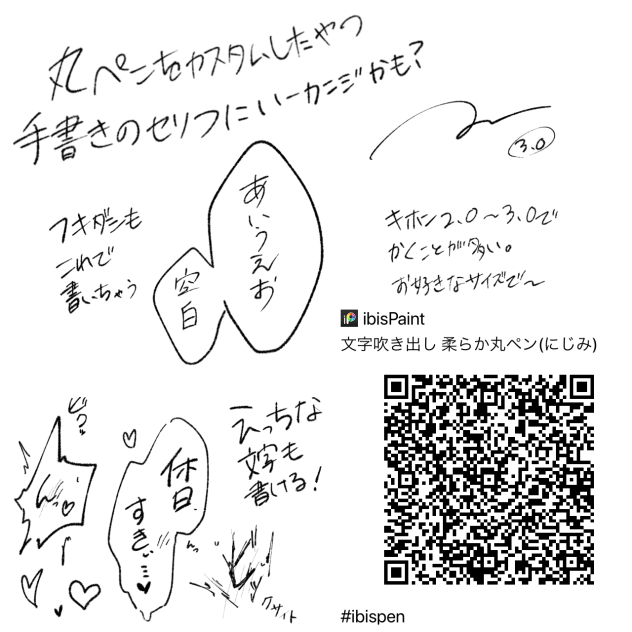 丸ペンをカスタムしたやつ
手書きのセリフにいーカンジかも?
3.0
フキダシも
これで
書いちゃう
あいうえお
空白
キホン2.0〜3.0で
かくことが多い。
お好きなサイズで〜
ibisPaint
文字吹き出し 柔らか丸ペン(にじみ)
ビクッ
ん
休日
すき…
えっちな
文字も
書ける!
#ibispen